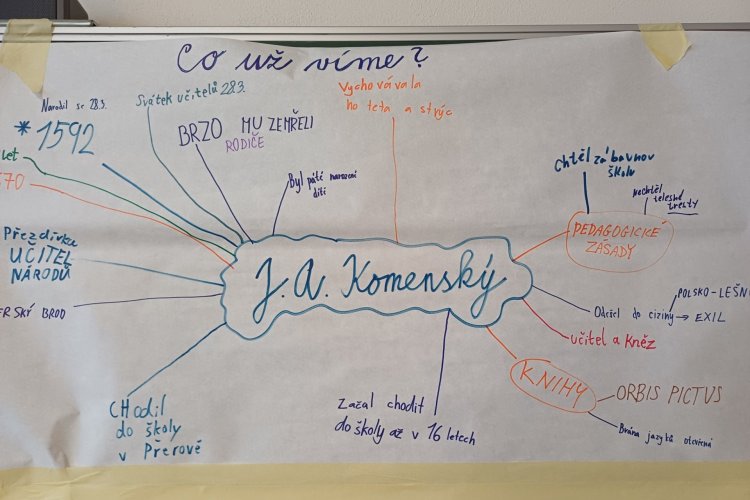 Co už víme?
Narodil se 28.3.
*1592
Svátek učitelů 28.3.
BRZO MU ZEMŘELI
RODIČE
Vychovávala
ho teta a strýc
Byl páté narození
dítě
Chtěl zábavnou
školu
Nechtěl
telesné
tresty
PEDAGOGICKÉ
ZÁSADY
let
70
Přezdívka
UČITEL
NÁRODŮ
ERSKÝ BROD
J. A. Komenský
POLSKO-LEŠN
Odešel do ciziny → EXIL
učitel a Kněz
KNIHY
ORBIS PICTUS
Brána jazyků otevřená
CHodil
do školy
v Přerově
Začal chodit
do školy až v 16 letech